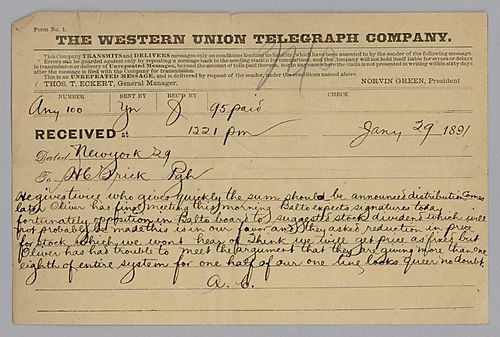 Form No. 1.
THE WESTERN UNION TELEGRAPH COMPANY.
This Company TRANSMITS and DELIVERS messages only on conditions limiting its liability, which have been assented to by the sender of the following message.
Errors can be guarded against only by repeating a message back to the sending station for comparison, and the Company will not hold itself liable for errors or delays
in transmission or delivery of Unrepeated Messages, beyond the amount of tolls paid thereon, nor in any case where the claim is not presented in writing within sixty days
after the message is filed with the Company for transmission.
This is an UNREPEATED MESSAGE, and is delivered by request of the sender, under the conditions named above.
THOS. T. ECKERT, General Manager. NORVIN GREEN, President
NUMBER SENT BY REC'D BY CHECK
Any 100 Yn 95 paid
RECEIVED at 1221 pm Jany 29 1891
Dated Newyork 29
To H C Frick Pgh
He gives twice who gives quickly the sum should be announced distribution comes
later Oliver has final meeting this morning Balto expects signatures today
fortunately opposition in Balto board to suggested stock dividend which will
not probably be made this is in our favor and they asked reduction in price
for stock which we wont hear of think we will get price as fixed but
Oliver has had trouble to meet the argument that they are giving more than one
eighth of entire system for one half of our one line looks queer no doubt.
A. C.